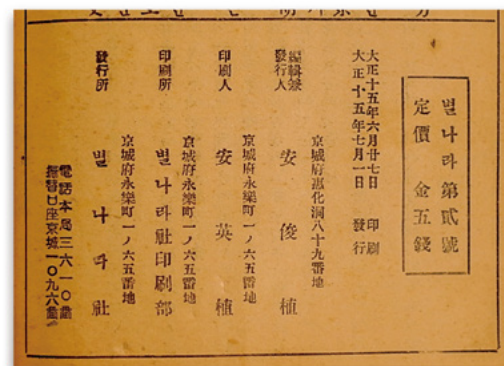 별나라 第貳號
定價 金五錢
大正十五年六月廿七日 印刷
大正十五年七月一日 發行
京城府惠化洞八十九番地
編輯兼
發行人 安俊植
京城府永樂町一ノ六五番地
印刷人 安英植
京城府永樂町一ノ六五番地
印刷所 별나라社印刷部
京城府永樂町一ノ六五番地
發行所 별나라社
電話本局三六一〇番
振替口座京城一〇九六番